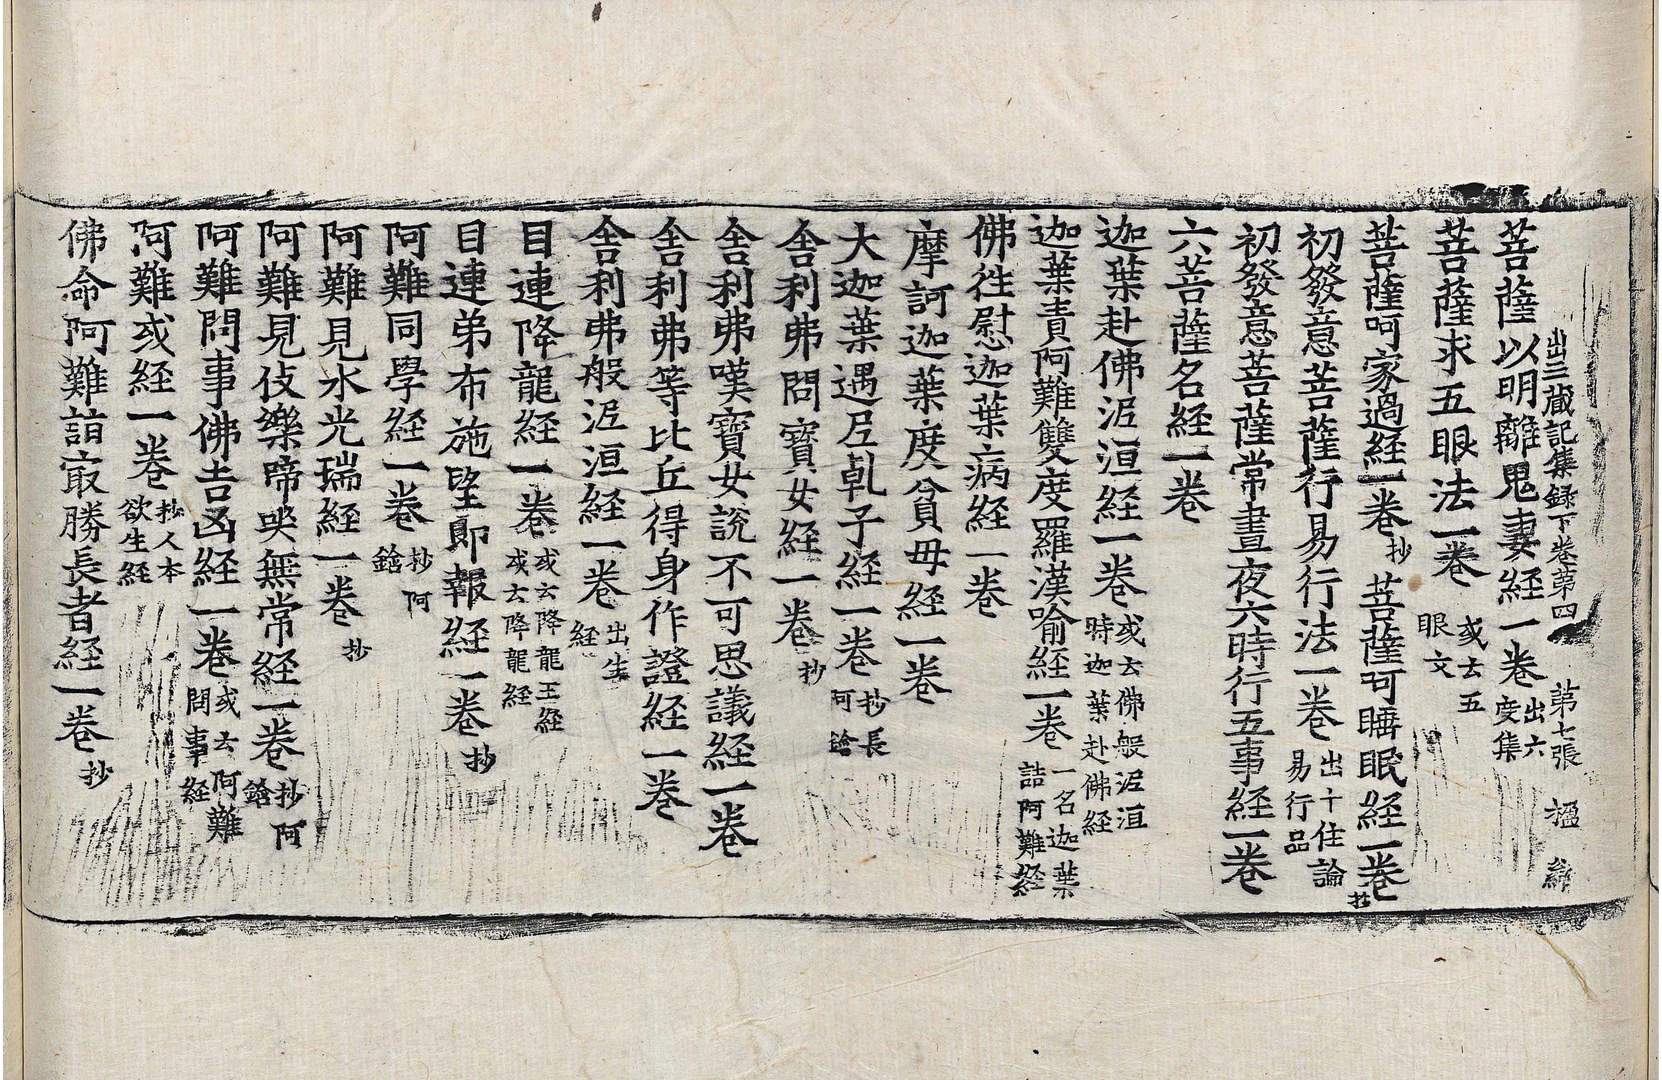 出三蔵記集録下卷第四 第七張 楹
菩薩以明離鬼妻経一卷 出六度集
菩薩求五眼法一卷 或云五眼文
菩薩呵家過経一卷 抄 菩薩呵睡眠経一卷 抄
初發意菩薩行易行法一卷 出十住論易行品
初發意菩薩常晝夜六時行五事経一卷
六菩薩名経一卷
迦葉赴佛泥洹経一卷 或云佛般泥洹時迦葉赴佛経
迦葉責阿難雙度羅漢喻経一卷 一名迦葉詰阿難経
佛徃慰迦葉病経一卷
摩訶迦葉度貧母経一卷
大迦葉遇尼乹子経一卷 抄長阿鋡
舍利弗問寶女経一卷 抄
舍利弗嘆寶女說不可思議経一卷
舍利弗等比丘得身作證経一卷
舍利弗般泥洹経一卷 出生経
目連降龍経一卷 或云降龍王経或云降龍経
目連弟布施望即報経一卷 抄
阿難同學経一卷 抄阿鋡
阿難見水光瑞経一卷 抄
阿難見伎樂啼哭無常経一卷 抄阿鋡
阿難問事佛吉凶経一卷 或云阿難問事経
阿難或経一卷 抄人本欲生経
佛命阿難詣㝡勝長者経一卷 抄